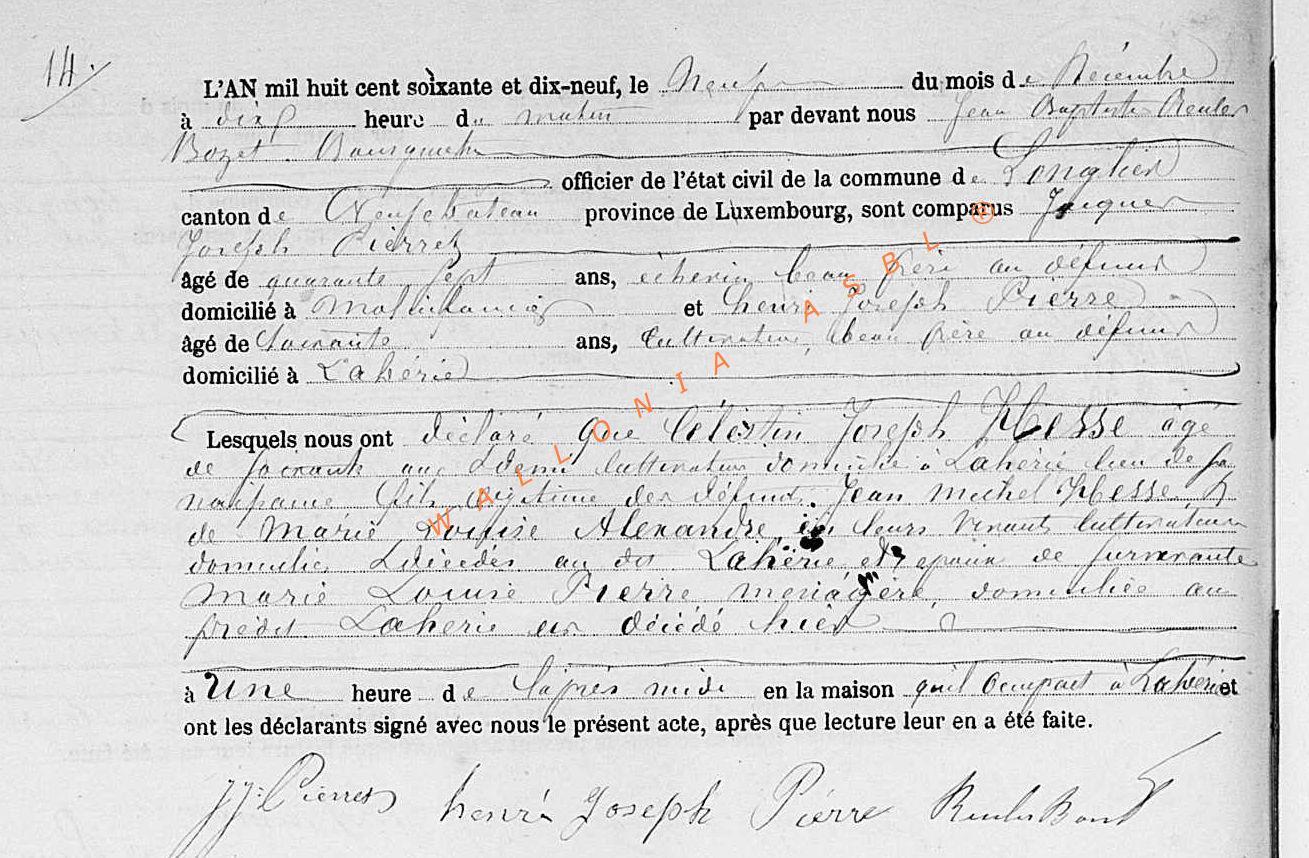 14.
L'AN mil huit cent soixante et dix-neuf, le Neuf du mois de Décembre
à dix heure du matin par devant nous Jean Baptiste Reuler
Bozet Bourgmestre
officier de l'état civil de la commune de Longlier
canton de Neufchateau province de Luxembourg, sont comparus Jacques
Joseph Pierret
âgé de quarante sept ans, échevin beau frère au défunt
domicilié à et henri Joseph Pierre
âgé de Soixante ans, Cultivateur, beau frère au défunt
domicilié à Lahérie
Lesquels nous ont déclaré que Célestin Joseph Hesse âgé
de soixante ans & demi Cultivateur domicilié à Lahérie lieu de sa
naissance fils légitime des défunts Jean Michel Hesse &
de Marie Louise Alexandre, en leurs vivants cultivateurs
domiciliés & décédés au dt Lahérie, et époux de survivante
Marie Louise Pierre menagère, domiciliée au
prédit Lahérie est décédé hier
à Une heure de l'après midi en la maison qu'il occupait à Lahérie et
ont les déclarants signé avec nous le présent acte, après que lecture leur en a été faite.
JJ. Pierret henri Joseph Pierre Reuler Bozet
WALLONIA ASBL ®